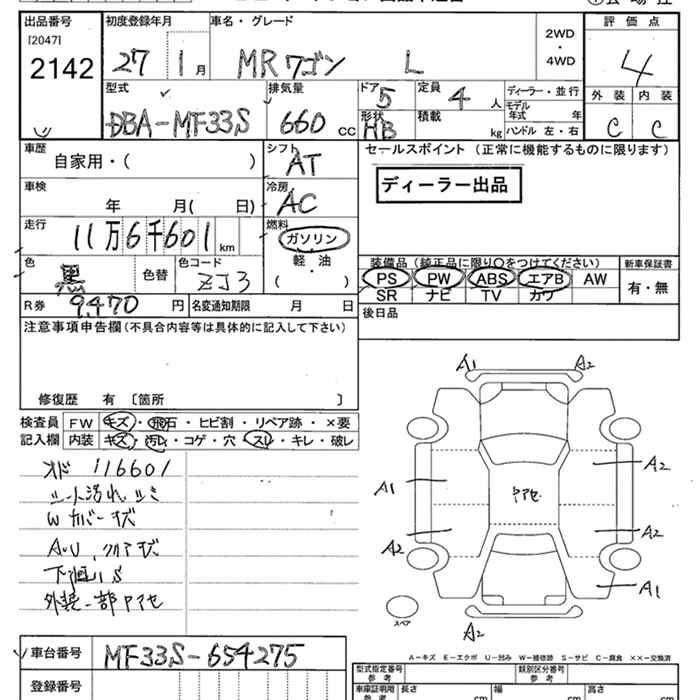 出品番号 初度登録年月 車名・グレード 評価点
[2047]
2142 27 1月 MRワゴン L 2WD・4WD 4
型式 排気量 ドア 定員 ディーラー・並行 外装 内装
DBA-MF33S 660 CC 5 4人 モデル年式 年 C C
形状 積載 HB kg ハンドル 左・右
車歴 シフト セールスポイント (正常に機能するものに限ります)
自家用・( ) AT
ディーラー出品
車検 冷房
年 月( 日) AC
走行 燃料
11万6千601km ガソリン
装備品 (純正品に限り○をつけてください) 新車保証書
色 色替 色コード 軽・油
黒 ZJ3 ( )
PS PW ABS エアB AW 有・無
SR ナビ TV カワ
R券 9,470円 名変通知期限 月 日
後日品
注意事項申告欄(不具合内容等は具体的に記入して下さい)
修復歴 有 〔箇所 〕
検査員 FW キズ・飛石・ヒビ割・リペア跡・×要
記入欄 内装 キズ・汚レ・コゲ・穴・スレ・キレ・破レ
A1 A2
A2
A1
アセ
A2 A2
A1
スペア
A2
116601
シート汚れ シミ
Wカバーキズ
下廻りS
外装一部アセ
A-キズ E-エクボ U-凹み W-補修跡 S-サビ C-腐食 ××-交換済
車台番号 MF33S-654275
型式指定番号 参考 類別区分番号 参考
登録番号
車庫証明用 参考 長さ cm 幅 cm 高さ cm